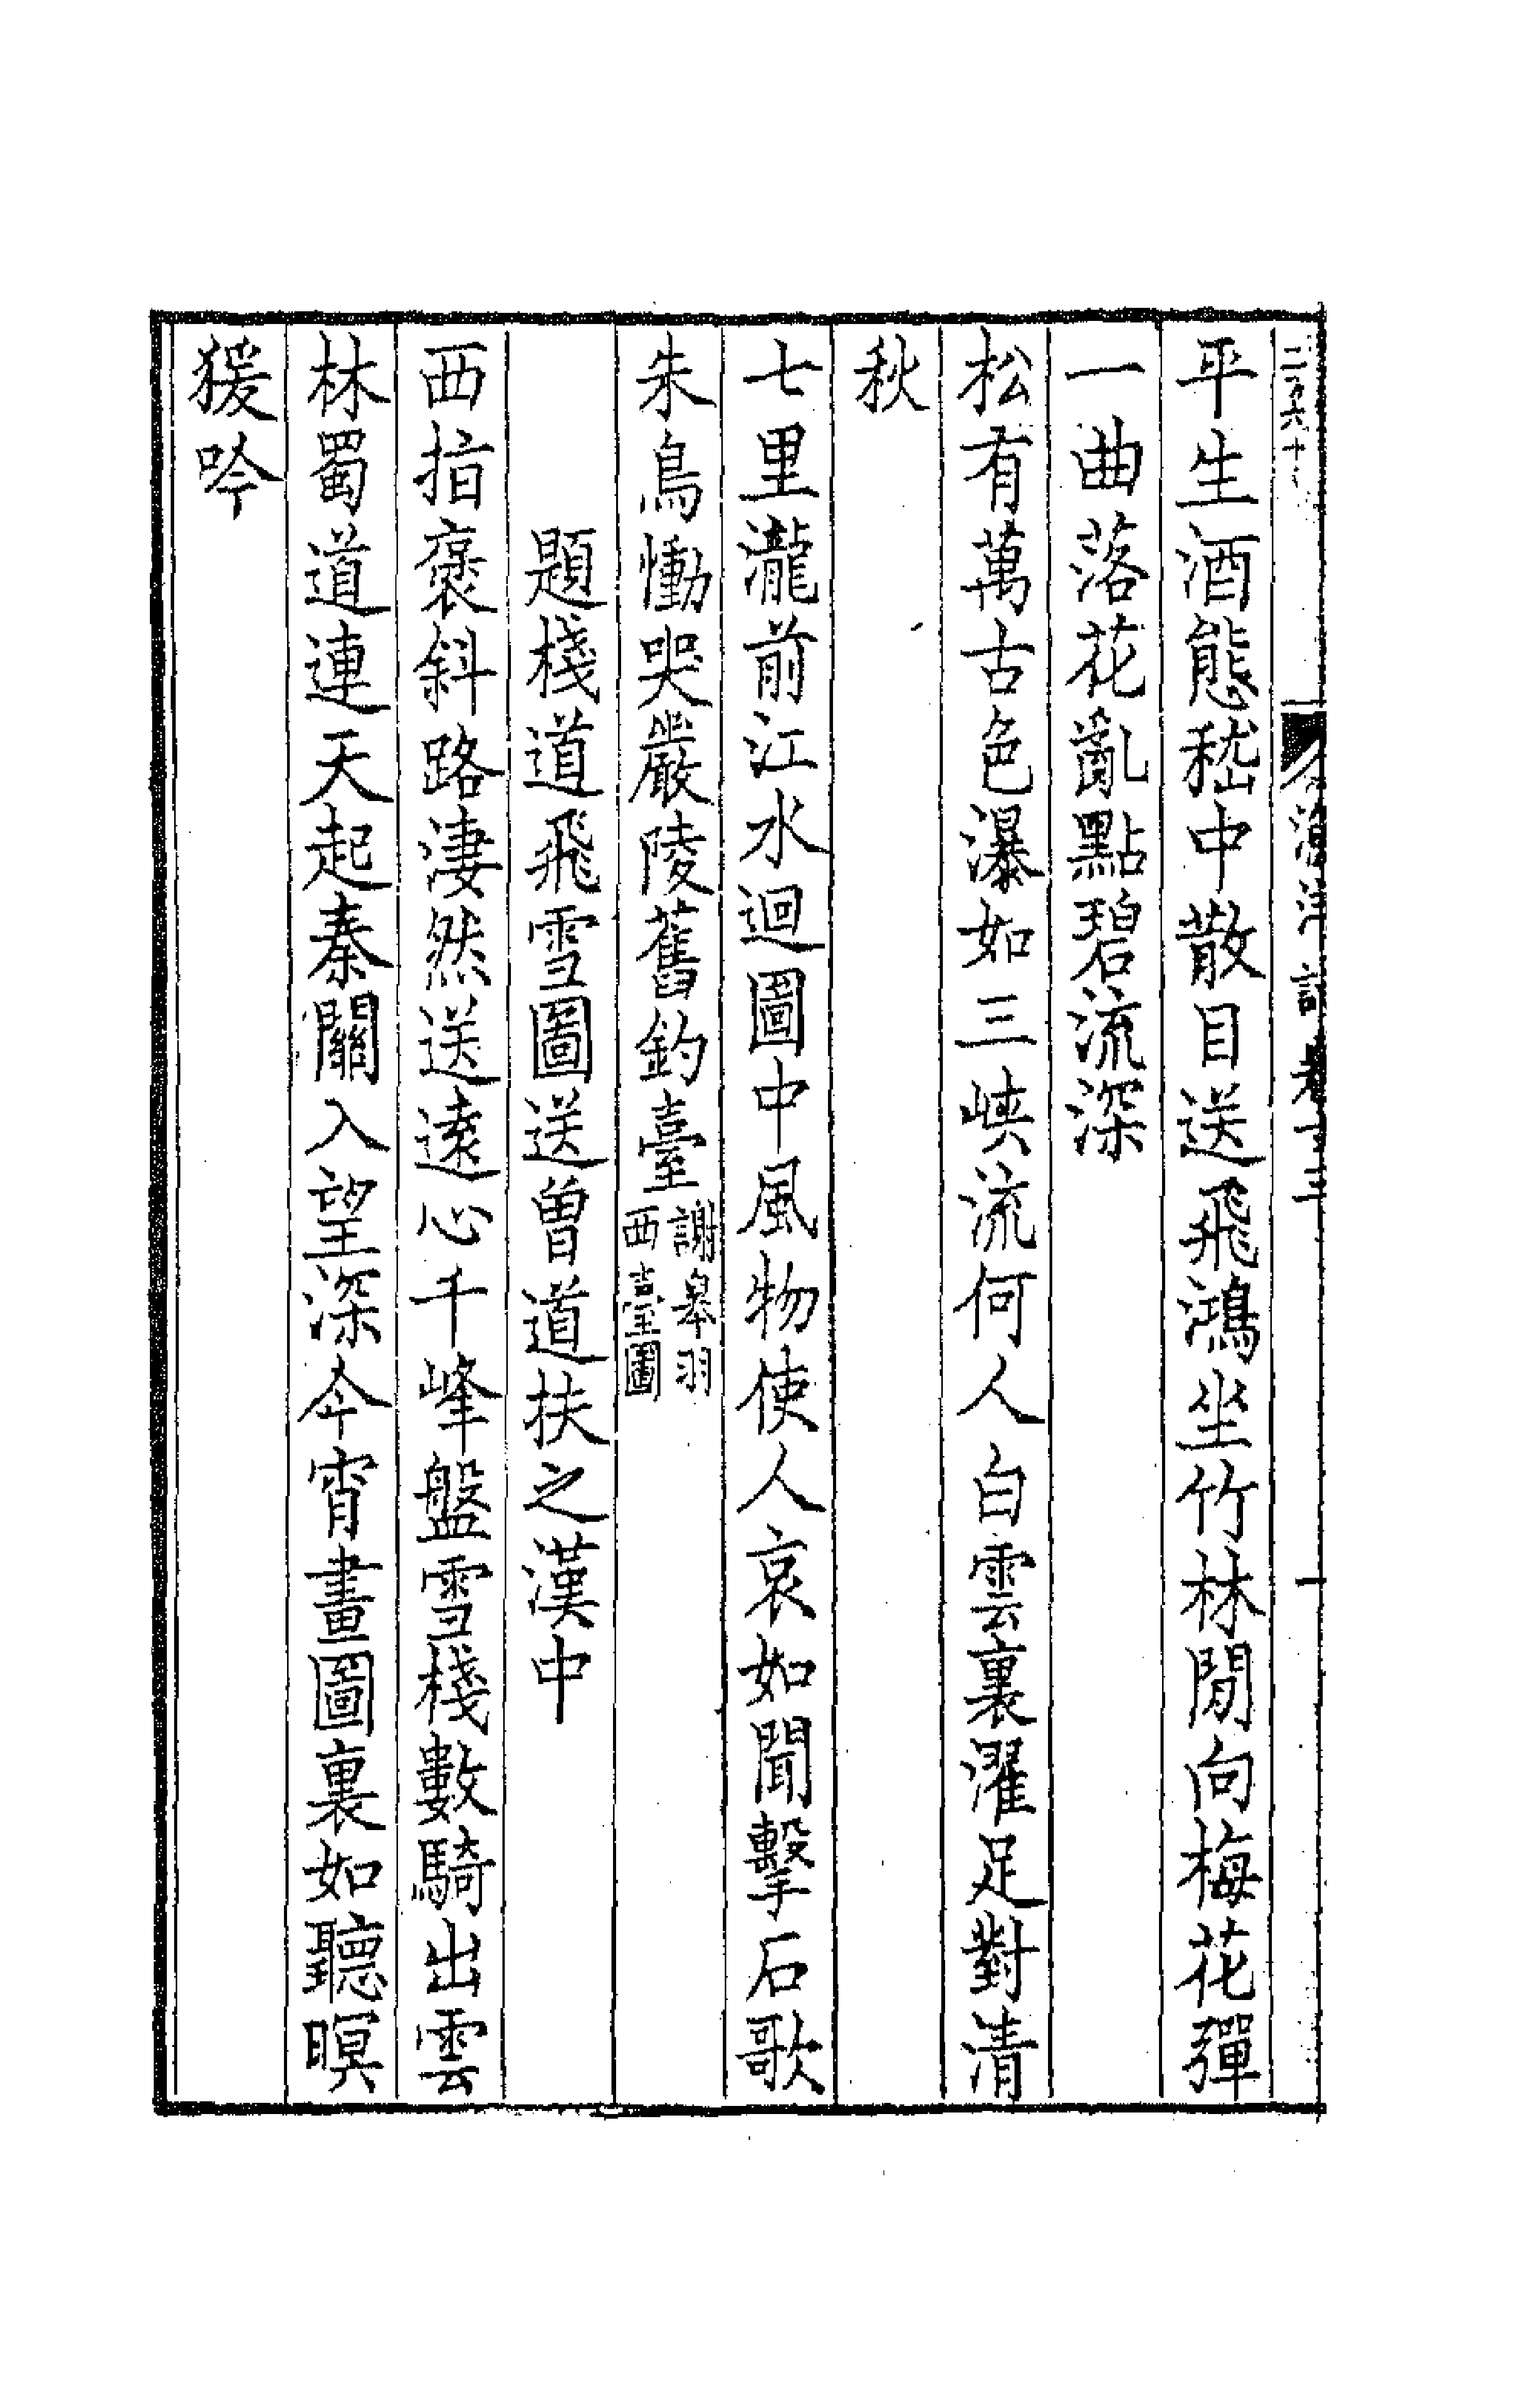 平生酒態嵇中散目送飛鴻坐竹林閒向梅花彈
一曲落花亂點碧流深
松有萬古色瀑如三峽流何人白雲裏濯足對清
秋
七里瀧前江水迴圖中風物使人哀如聞擊石歌
朱鳥慟哭嚴陵舊釣臺謝皋羽
西臺圖
題棧道飛雪圖送曾道扶之漢中
西指褒斜路淒然送遠心千峰盤雪棧數騎出雲
林蜀道連天起秦關入望深今宵畫圖裏如聽暝
猨吟